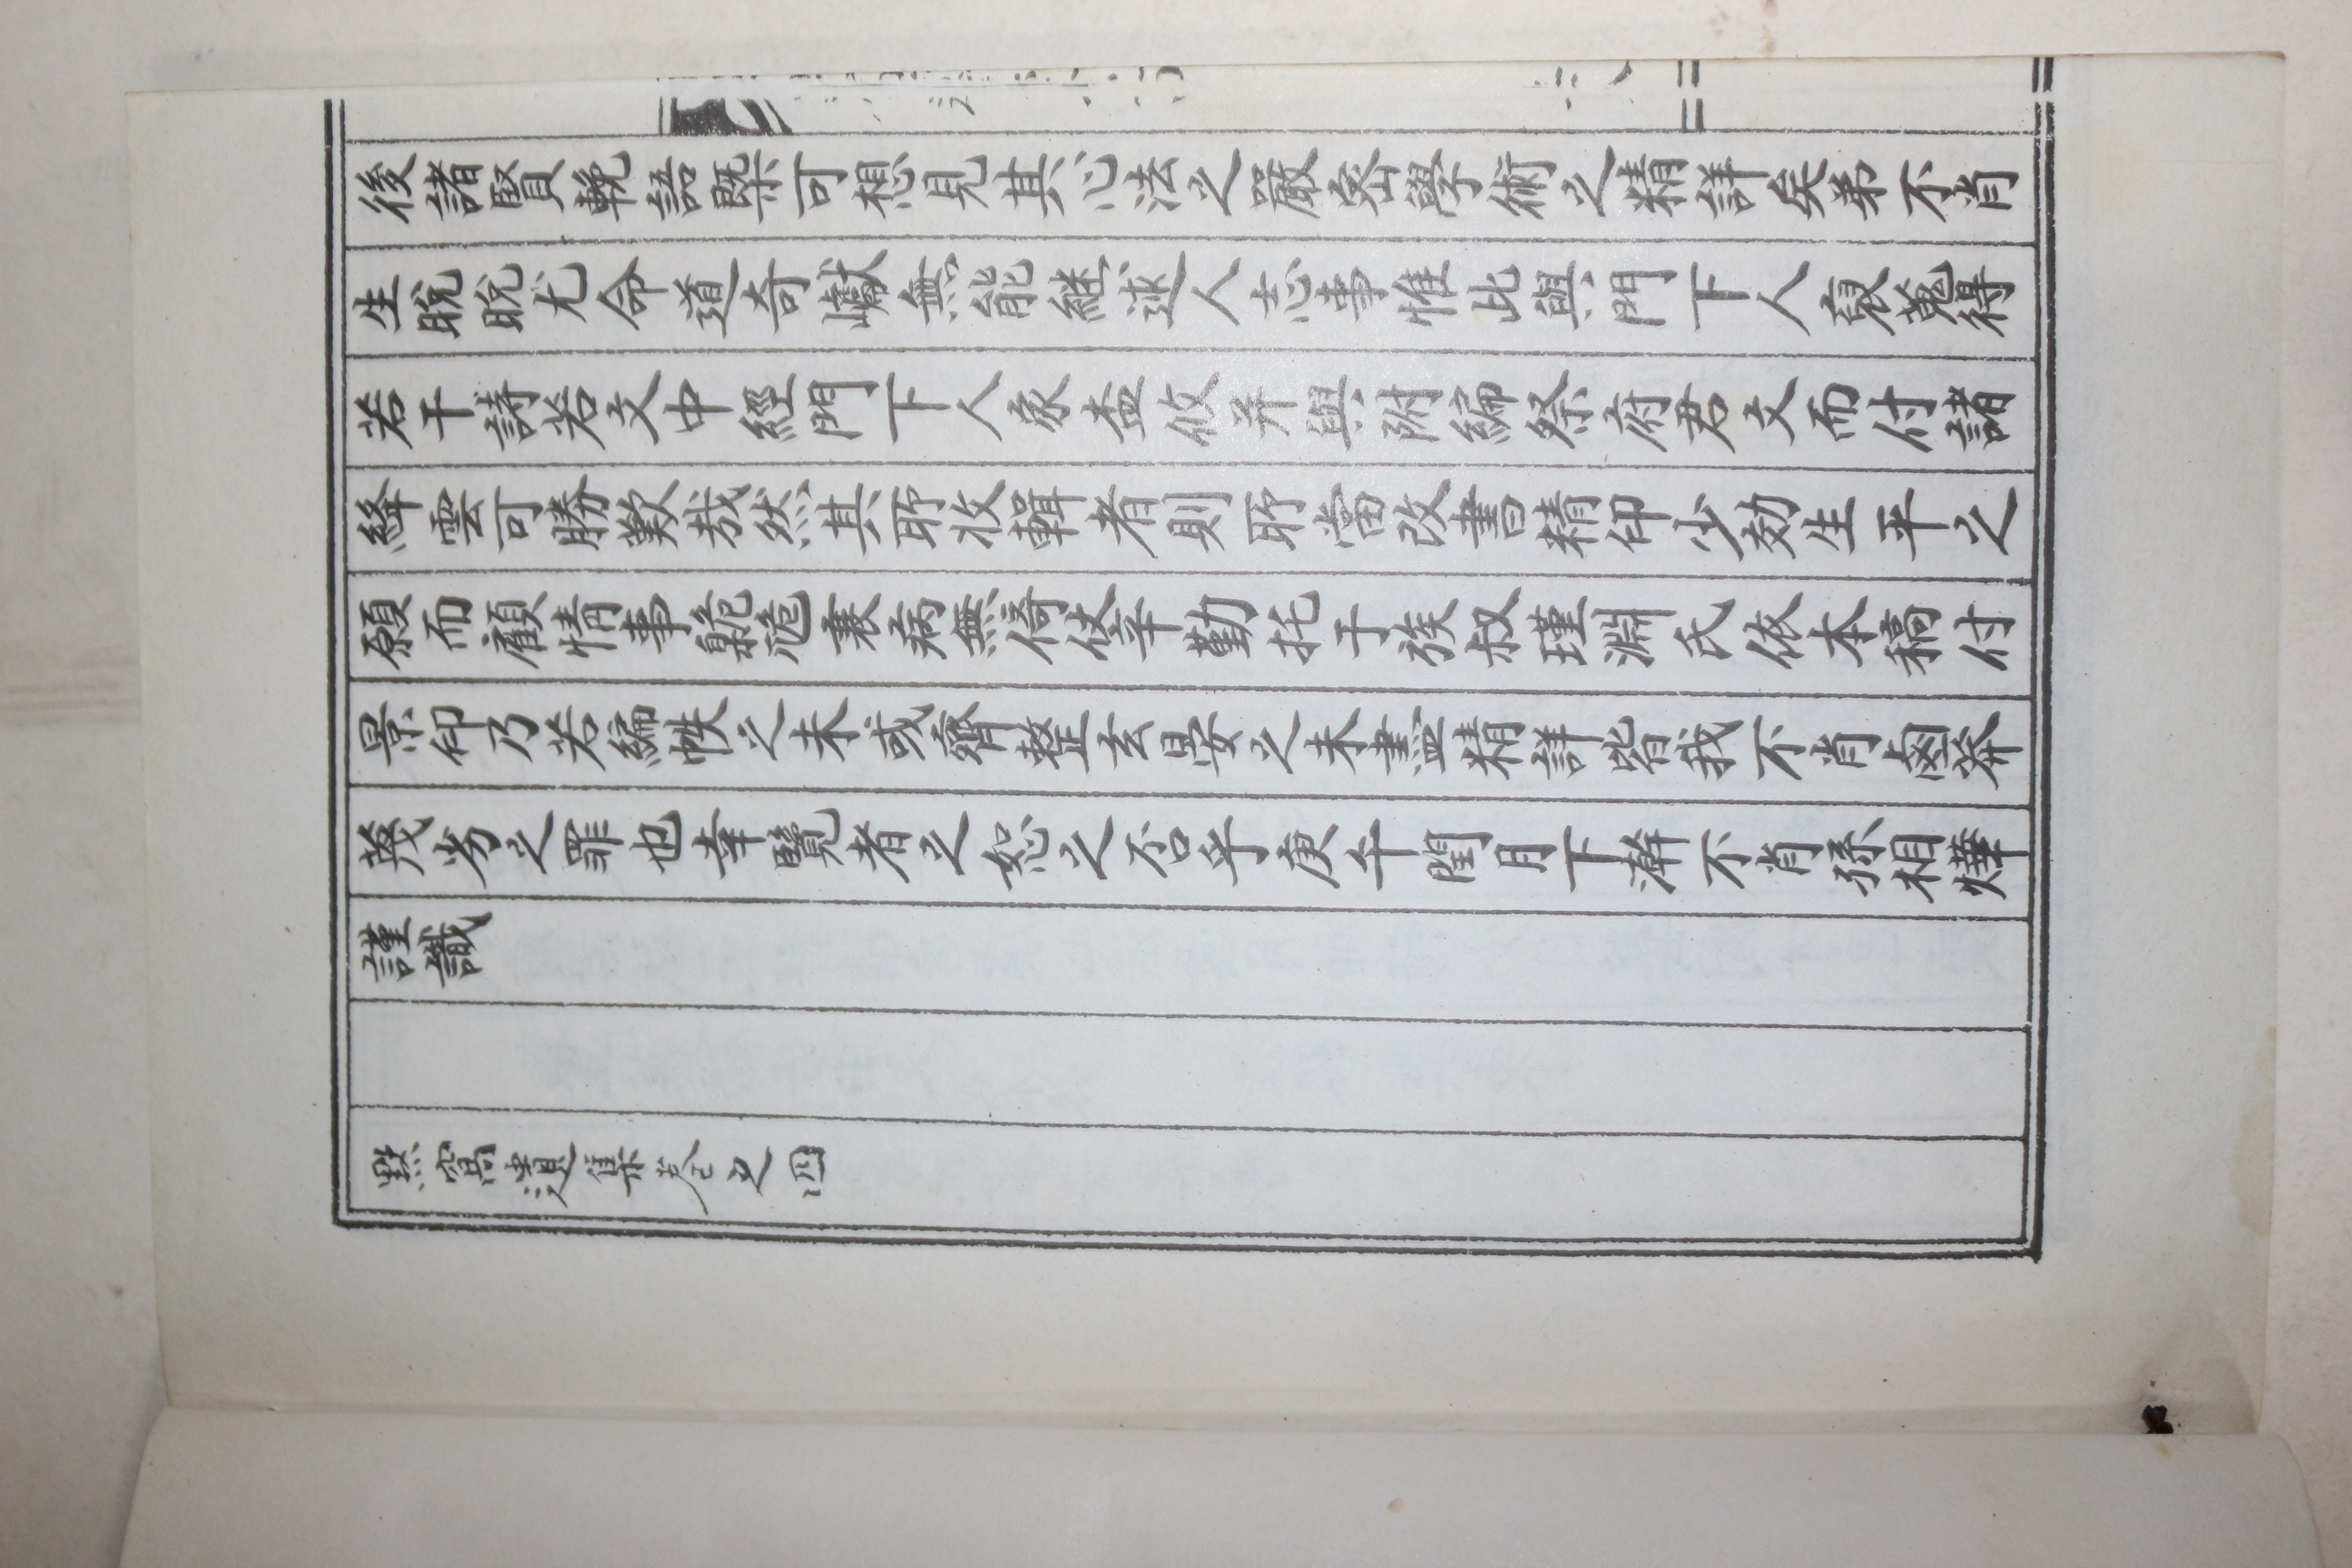 後諸賢輓語槩可想見其心法之嚴密學術之精詳矣弟不肖
生晩晩尤命道奇巘無能継述人志事惟此與門下人裒蒐得
若干詩若文中經門下人家盍攸并與附編祭府君文而付諸
絳雲可勝歎哉然其所收輯者則所當改書精印少効生平之
願而顧情事臲卼衰病無倚仗辛勤托于族叔瑾淵氏依本稿付
景印乃若編帙之未或齊整玄晏之未盡精詳皆我不肖鹵莽
蔑劣之罪也幸覽者之恕之否乎庚午閏月下澣不肖孫相燁
謹識
默窩遺集卷之四